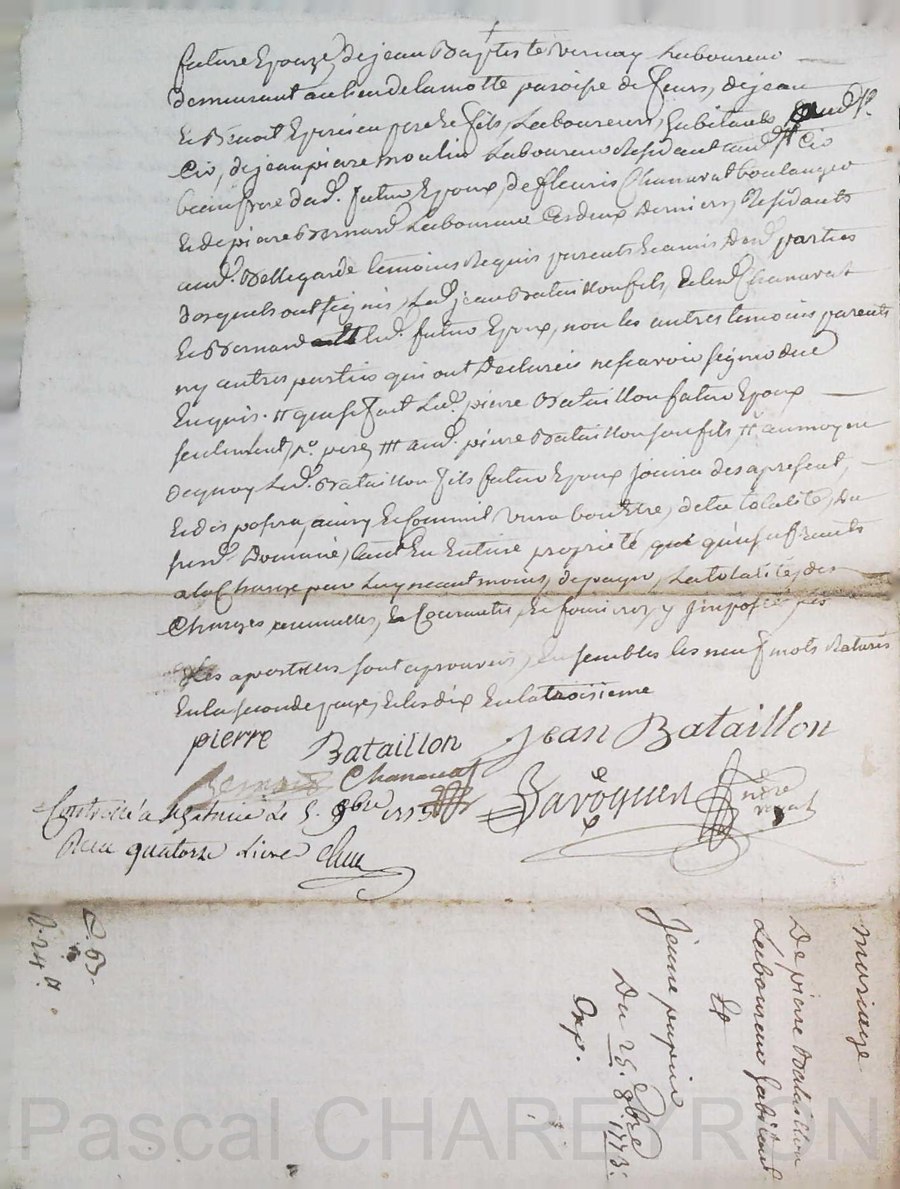 future Epouze, de jean Baptiste Vernay Laboureur
demeurant au lieu de la motte paroisse de feurs, de jean
Et Benoit Epercieu pere Et fils, Laboureurs, habitants aud. St.
Cir, de jean pierre moulin Laboureur Residant aud. St Cir
beaufrere dud. futur Epoux, de fleuris Chanavat boulanger
Et de pierre Bernard Laboureur Ces deux Derniers, Residants
aud. Bellegarde temoins Requis parents Et amis Desd. parties
desquels ont signés, Led. jean Bataillon fils, Lesd. Chanavat
Et Bernard led. futur Epoux, non les autres temoins parents
ny autres parties qui ont Declarés ne scavoir signer de ce
Enquis. # que fait Led. pierre Bataillon futur Epoux
seulement, pere, aud. pierre Bataillon son fils # au moyen
de quoy Led. Bataillon fils futur Epoux jouira des a present,
Et disposera, ainsy Et Comme verra bon Etre, de la totalité, du
susd. Domaine, tant En Entiere propriété, qu'usufruits
a la Charge par Luy neantmoins, de payer, La totalité, des
Charges annuelles, Et Courantes, Et foncieres, y imposés
Les apostilles sont aprouvés, Ensembles les neuf mots Raturés
En la seconde page, Et les dix En la troisieme
pierre Bataillon Jean Bataillon
Bernard Chanavat
Controllé a le 5. 9bre 1773
Recu quatorze Livres
mariage
De pierre Bataillon
Laboureur habitant
Et
Jeanne pupier
Du 25. 8bre 1773.
Exp.
Pascal CHAREYRON